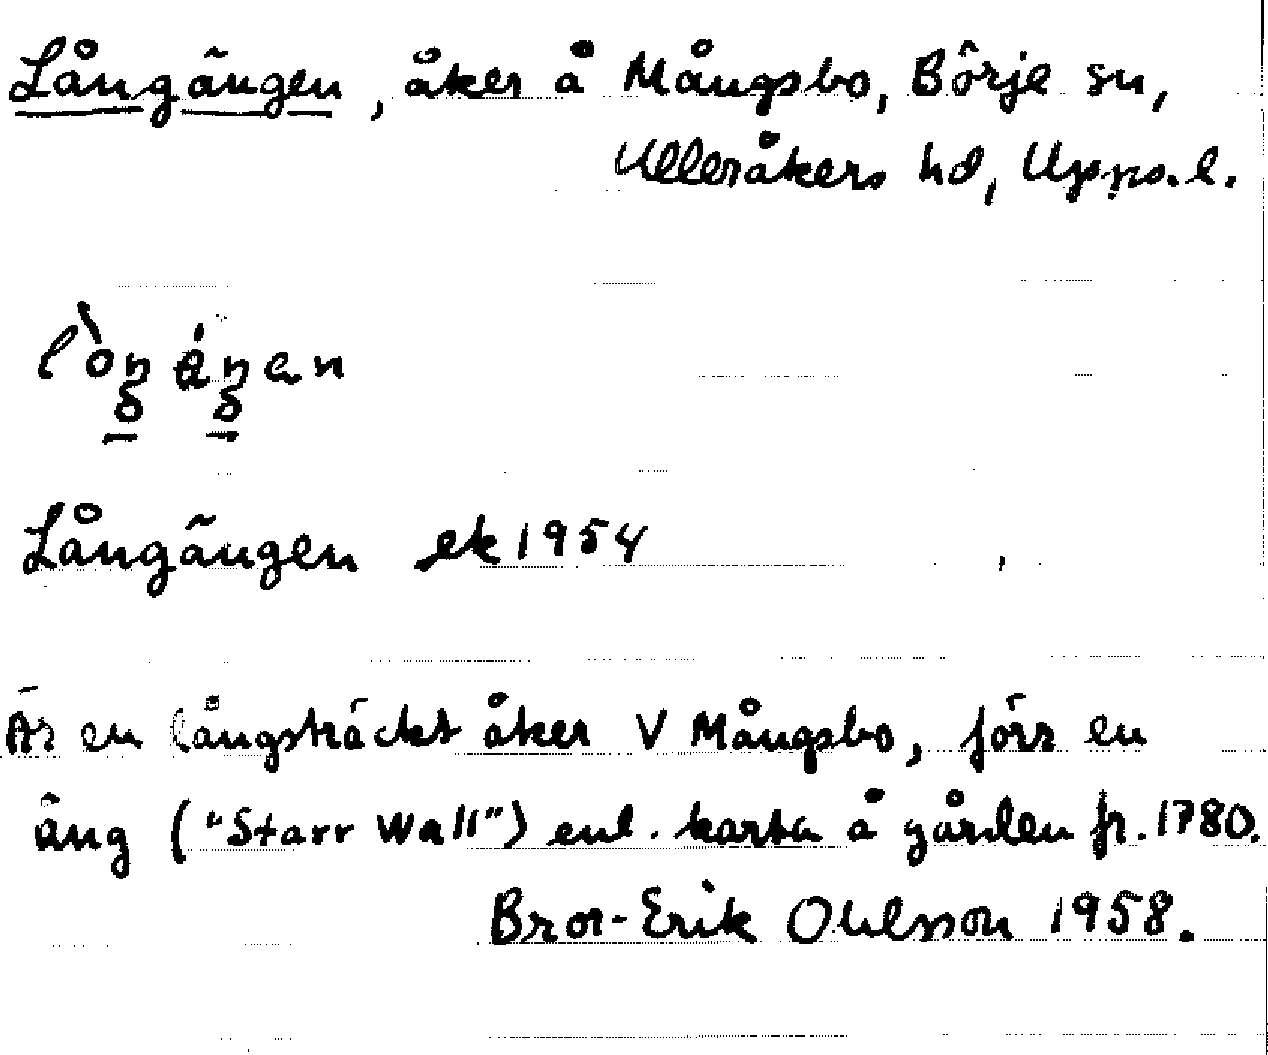 Långängen, åker å Mångsbo, Börje sn,
Ulleråkers hd, Upps.l.
Långängen ek 1954
Är en långsträckt åker V Mångsbo, förr en
äng ("Starr Wall") enl. karta å gården fr. 1780.
Bror-Erik Ohlsson 1958.